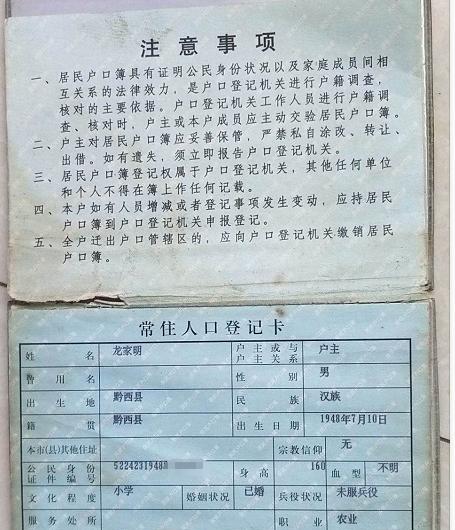 注意事项
一、居民户口簿具有证明公民身份状况以及家庭成员间相
互关系的法律效力，是户口登记机关进行户籍调查，
核对的主要依据。户口登记机关工作人员进行户籍调
查、核对时，户主或本户成员应主动交验居民户口簿。
二、户主对居民户口簿应妥善保管，严禁私自涂改、转让、
出借。如有遗失，须立即报告户口登记机关。
三、居民户口簿登记权属于户口登记机关，其他任何单位
和个人不得在簿上作任何记载。
四、本户如有人员增减或者登记事项发生变动，应持居民
户口簿到户口登记机关申报登记。
五、全户迁出户口管辖区的，应向户口登记机关缴销居民
户口簿。
常住人口登记卡
姓名 龙家明 户主或与户主关系 户主
曾用名 性别 男
出生地 黔西县 民族 汉族
籍贯 黔西县 出生日期 1948年7月10日
本市(县)其他住址 宗教信仰 无
公民身份证件编号 5224231948 身高 160 血型 不明
文化程度 小学 婚姻状况 已婚 兵役状况 未服兵役
服务处所 职业 农业